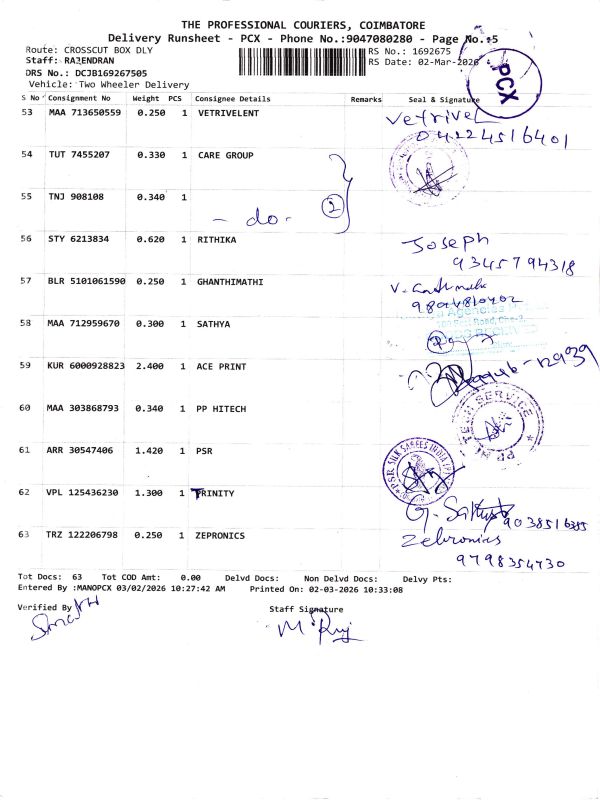 THE PROFESSIONAL COURIERS, COIMBATORE
Delivery Runsheet - PCX - Phone No.:9047080280 - Page No.:5
Route: CROSSCUT BOX DLY
RS No.: 1692675
Staff: RAJENDRAN
RS Date: 02-Mar-2026
DRS No.: DCJB169267505
Vehicle: Two Wheeler Delivery
PCX
S No Consignment No Weight PCS Consignee Details Remarks Seal & Signature
53 MAA 713650559 0.250 1 VETRIVELENT Vetrivel
04224516401
54 TUT 7455207 0.330 1 CARE GROUP
55 TNJ 908108 0.340 1
- do - 2
56 STY 6213834 0.620 1 RITHIKA Joseph
9345794318
57 BLR 5101061590 0.250 1 GHANTHIMATHI
58 MAA 712959670 0.300 1 SATHYA
59 KUR 6000928823 2.400 1 ACE PRINT
60 MAA 303868793 0.340 1 PP HITECH
61 ARR 30547406 1.420 1 PSR
62 VPL 125436230 1.300 1 TRINITY
63 TRZ 122206798 0.250 1 ZEPRONICS Zebronics
9798354730
Tot Docs: 63 Tot COD Amt: 0.00 Delvd Docs: Non Delvd Docs: Delvy Pts:
Entered By :MANOPCX 03/02/2026 10:27:42 AM Printed On: 02-03-2026 10:33:08
Verified By
Staff Signature